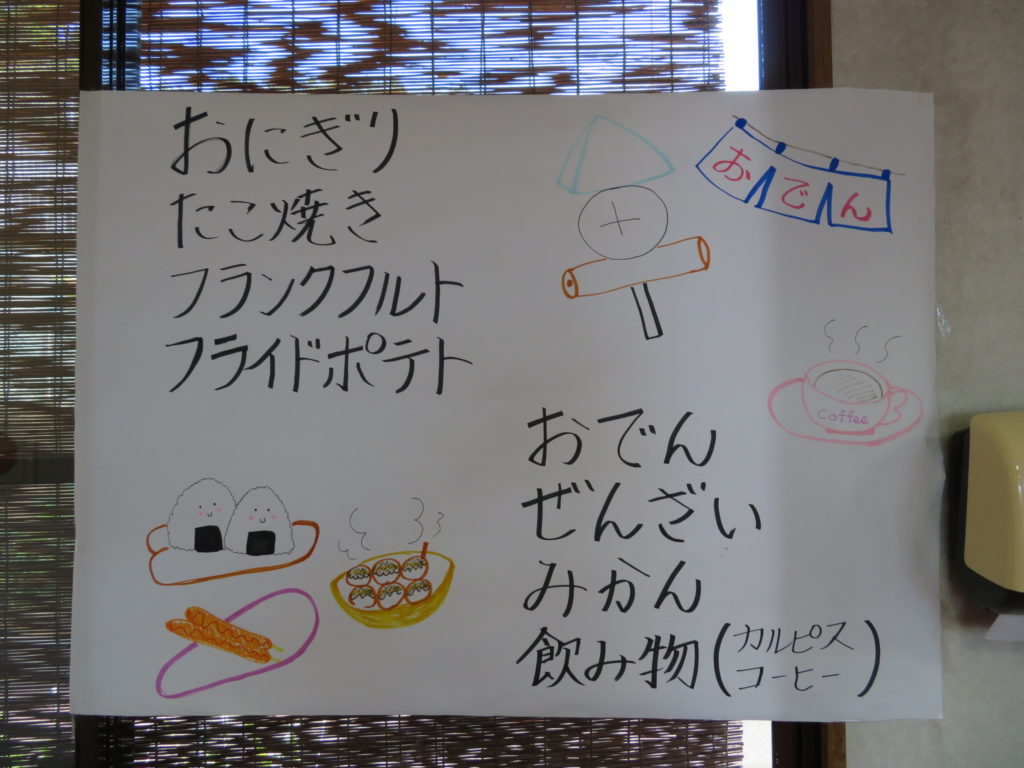 おにぎり
たこ焼き
フランクフルト
フライドポテト
おでん
Coffee
おでん
ぜんざい
みかん
飲み物(カルピス
コーヒー)